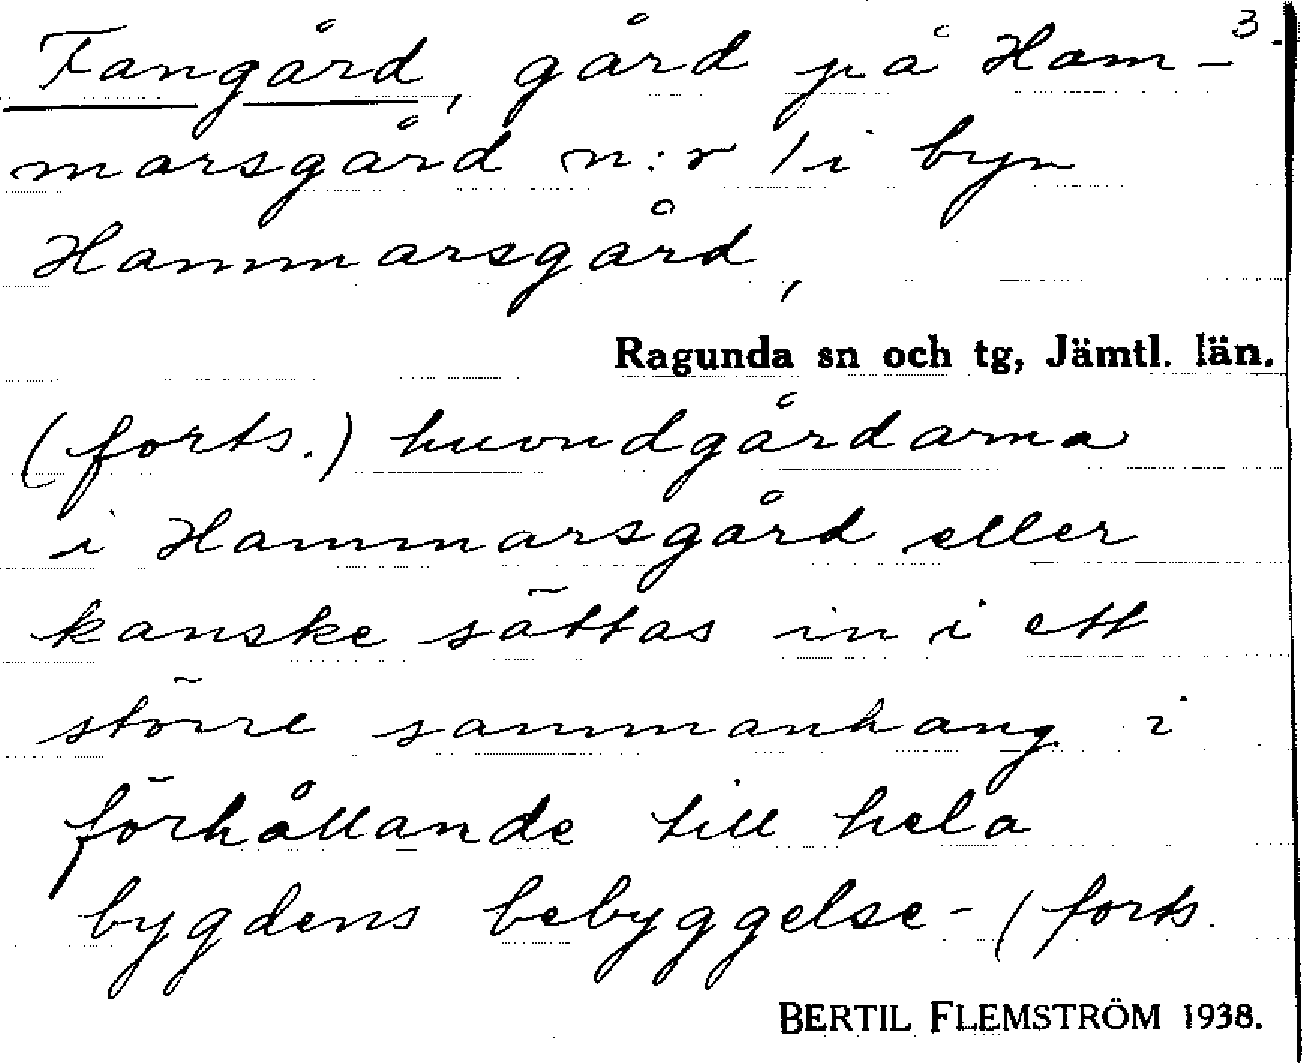 3.
Fangård, gård på Ham-
marsgård n:r 1 i byn
Hammarsgård,
Ragunda sn och tg, Jämtl. län.
(forts.) huvudgårdarna
i Hammarsgård eller
kanske sättas in i ett
större sammanhang i
förhållande till hela
bygdens bebyggelse- (forts.
BERTIL FLEMSTRÖM 1938.